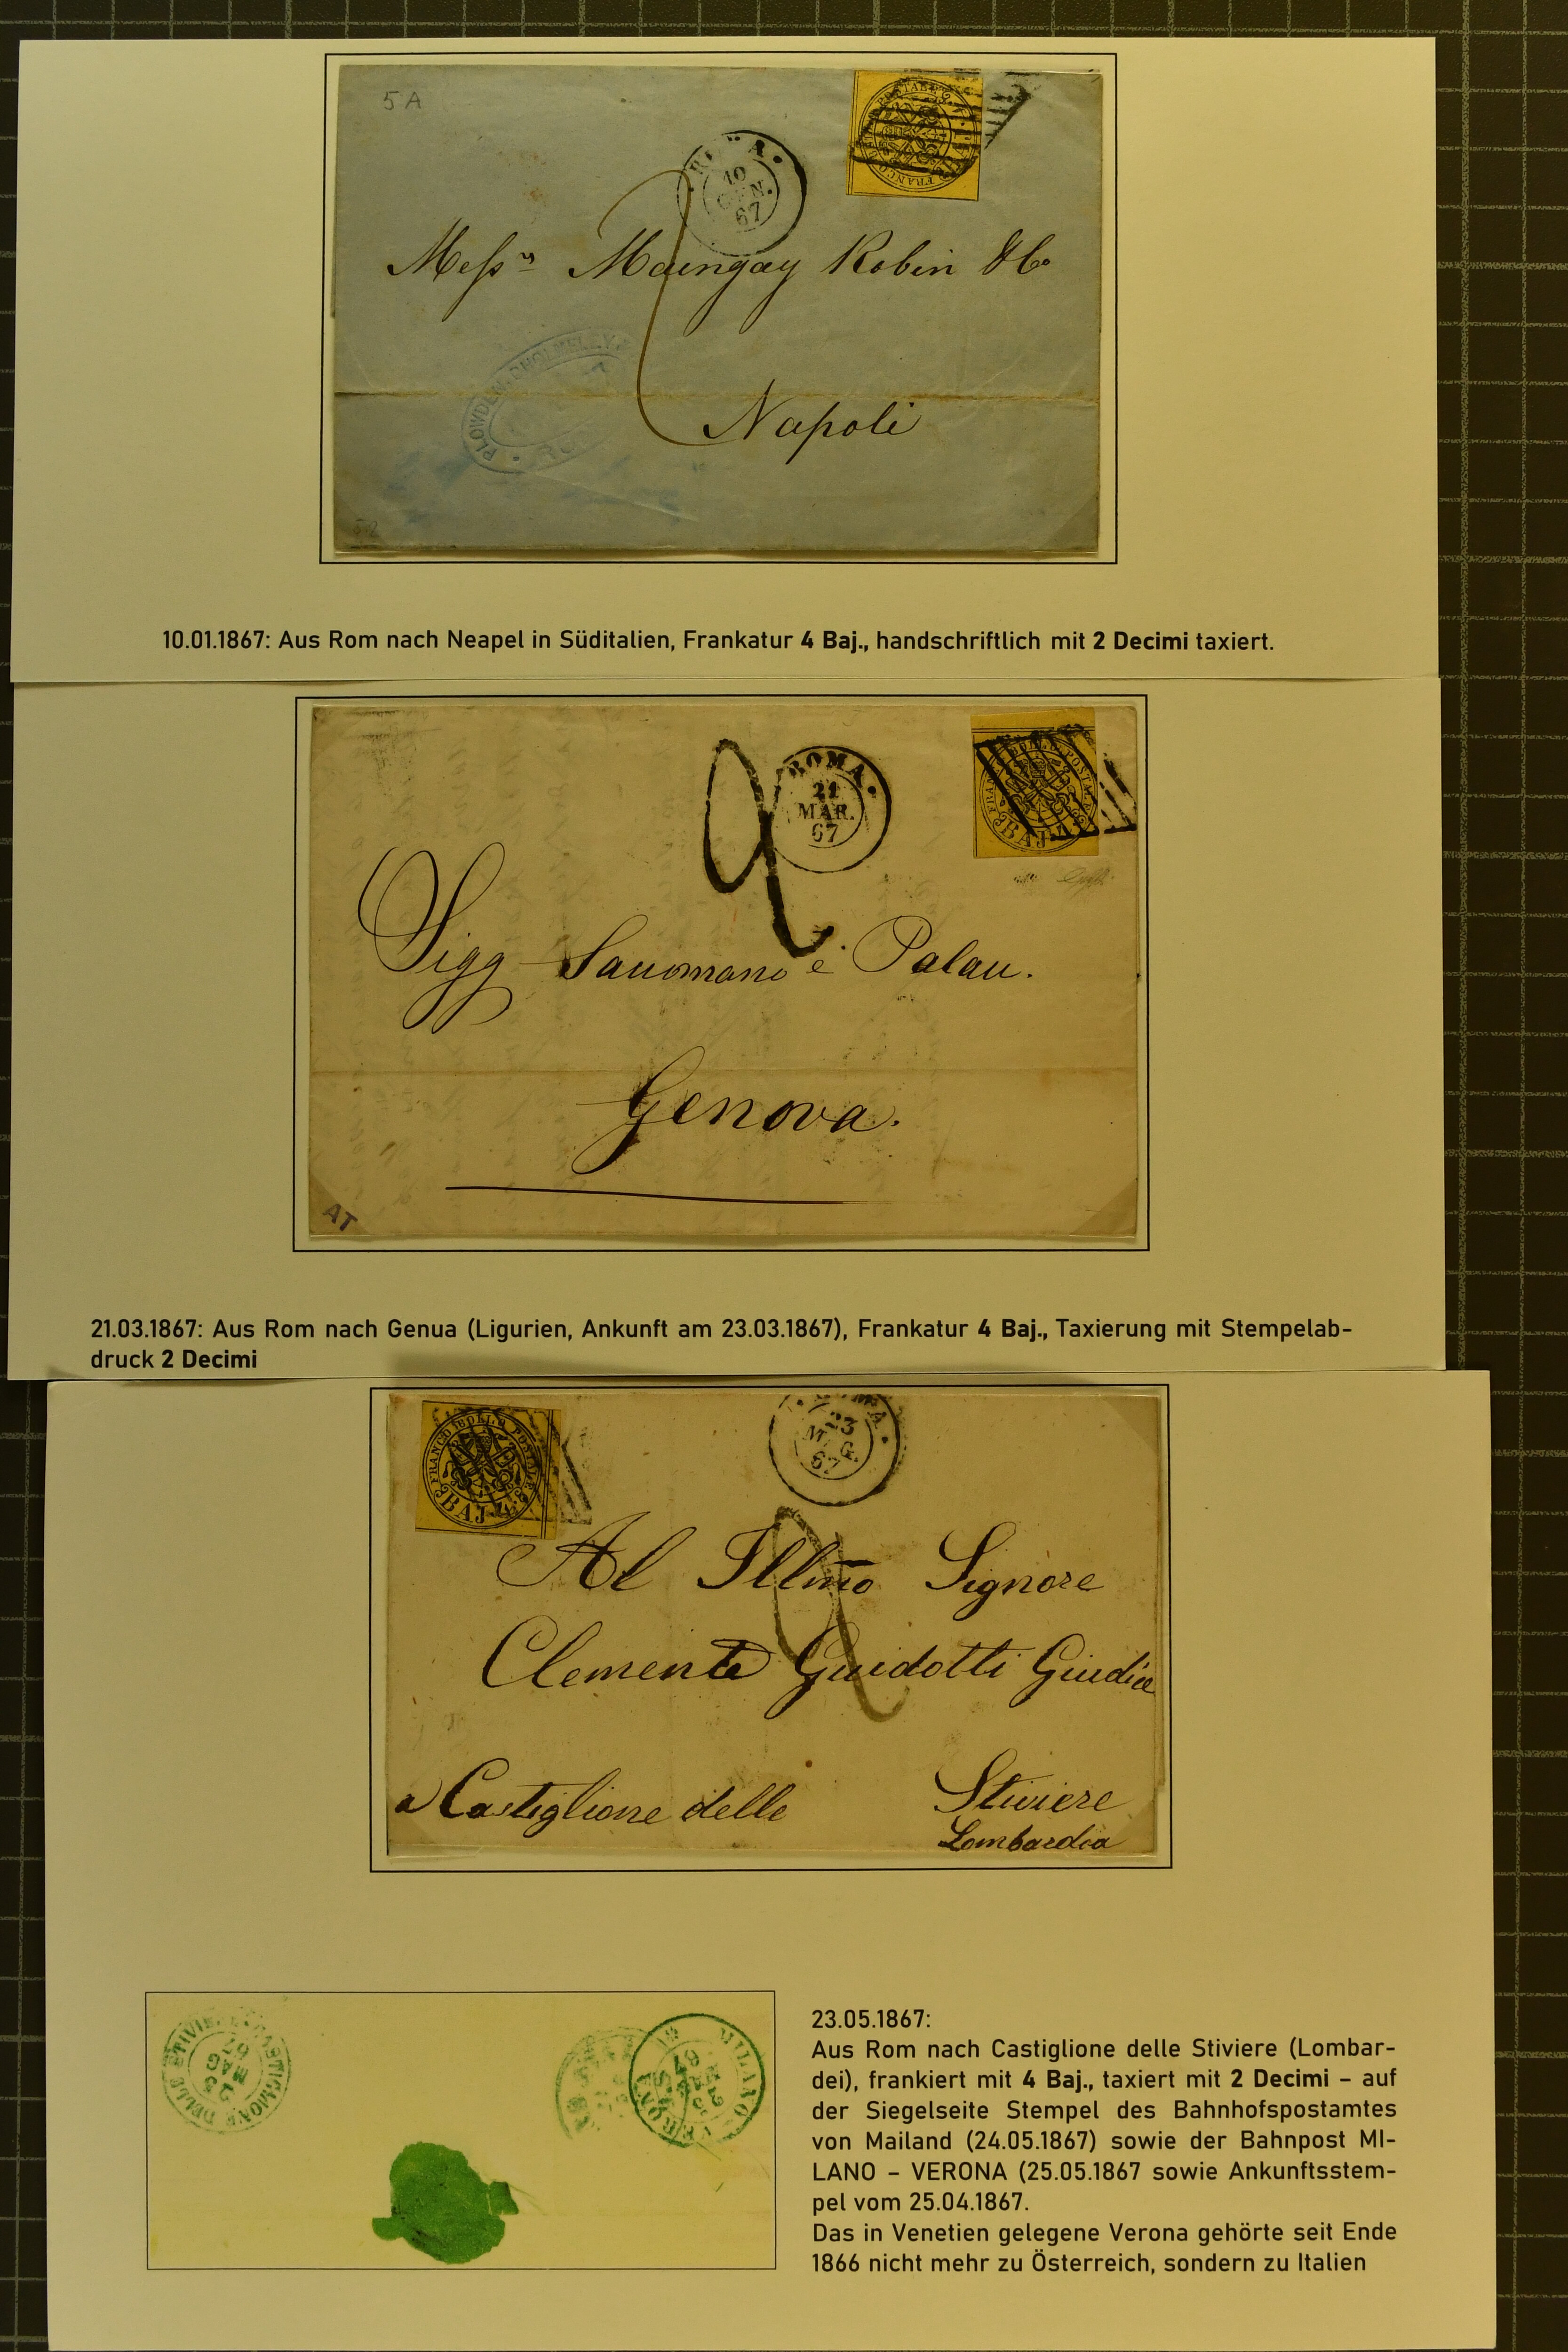 5 A
FRANCO
10
GEN.
67
Messrs Maingay Robin & Co
PLOWDEN CHOLMELEY
Napoli
10.01.1867: Aus Rom nach Neapel in Süditalien, Frankatur 4 Baj., handschriftlich mit 2 Decimi taxiert.
2
ROMA
21
MAR.
67
BAJ
Sigg Sauomano e Palau.
Genova.
AT
21.03.1867: Aus Rom nach Genua (Ligurien, Ankunft am 23.03.1867), Frankatur 4 Baj., Taxierung mit Stempelab-
druck 2 Decimi
FRANCO BOLLO POSTALE
BAJ 4
23
MAG.
67
2
Al Illmo Signore
Clemente Guidotti Giudice
a Castiglione delle Stiviere
Lombardia
CASTIGLIONE DELLE STIVIE
25
MAG
67
MILANO
VERONA
23.05.1867:
Aus Rom nach Castiglione delle Stiviere (Lombar-
dei), frankiert mit 4 Baj., taxiert mit 2 Decimi – auf
der Siegelseite Stempel des Bahnhofspostamtes
von Mailand (24.05.1867) sowie der Bahnpost MI-
LANO – VERONA (25.05.1867 sowie Ankunftsstem-
pel vom 25.04.1867.
Das in Venetien gelegene Verona gehörte seit Ende
1866 nicht mehr zu Österreich, sondern zu Italien